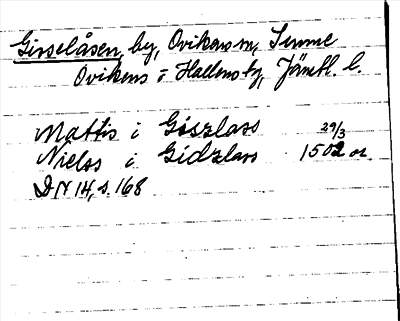 Gisselåsen, by, Ovikens sn, Sunne
Ovikens o Hallens tg, Jämtl. l.
Mattis i Göszlass 29/3
Nielss i Gidzlass 1502 or.
DN 14, s. 168